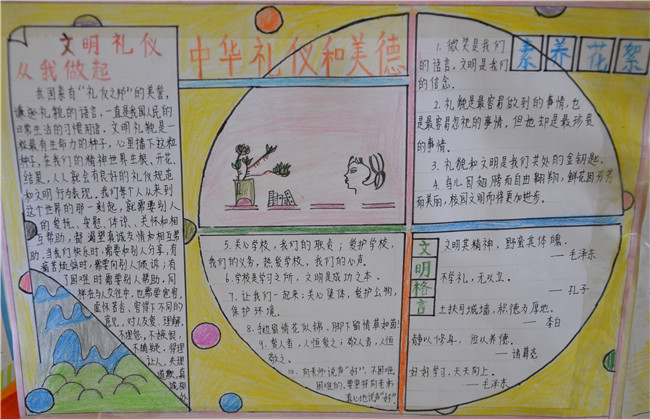 文明礼仪
从我做起
我国素有“礼仪之邦”的美誉，
谦逊礼貌的语言，一直是我国人民的
日常生活的习惯用语，文明礼貌是一
粒最有生命力的种子，心里播下这粒
种子，在我们的精神世界生根、开花、
结果，人人就会有良好的礼仪规范
和文明行为表现。我们每个人从来到
这个世界的那一刻起，就需要别人
的爱抚、安慰、体谅、关怀和相
互帮助，都渴望真诚友情和相互帮
助，当我们快乐时，需要和别人分享，有
痛苦烦恼时，需要向别人倾诉；有
了困难时需要别人帮助，同
样在与人交往中，也都要会宽
重体
意见，对人友爱、理解，
不埋怨，不
得理
让人，关
中华礼仪和美德
素养花絮
1、微笑是我们
的语言，文明是我们
的信念。
2、礼貌是最容易做到的事情，也
是最容易忽视的事情，但她却是最珍贵
的事情。
3、礼貌和文明是我们共处的金钥匙。
4、鸟儿因翅膀而自由翱翔，鲜花因芬芳
而美丽，校园文明而将更加进步。
5、关心学校，我们的职责；爱护学校，
我们的义务，热爱学校，我们的心声。
6、学校是学习之所，文明是成功之本。
7、让我们一起来：关心集体，爱护公物，
保护环境。
8、手边留情花似锦，脚下留情草如茵！
9、爱人者，人恒爱之；敬人者，人恒
敬之。
10、向老师说声“好”，不困难，
困难的，要坚持向老师
真心地说声“好”。
文明格言
文明其精神，野蛮其体魄。
—毛泽东
不学礼，无以立。
—孔子
土扶可城墙，积德为厚地。
—李白
静以修身，俭以养德。
—诸葛亮
好好学习，天天向上。
—毛泽东